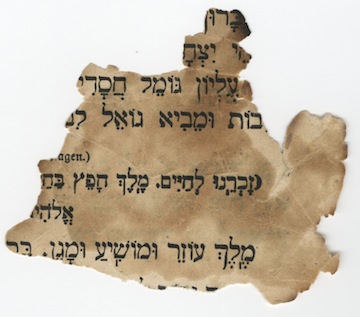 בָּרוּ
הֵי יִצְחָ
עֶלְיוֹן גּוֹמֵל חֲסָדִי
בוֹת וּמֵבִיא גוֹאֵל
agen.)
(זָכְרֵנוּ לְחַיִּים. מֶלֶךְ חָפֵץ בַּחַ
אֱלֹהִי
מֶלֶךְ עוֹזֵר וּמוֹשִׁיעַ וּמָגֵן. בָּר